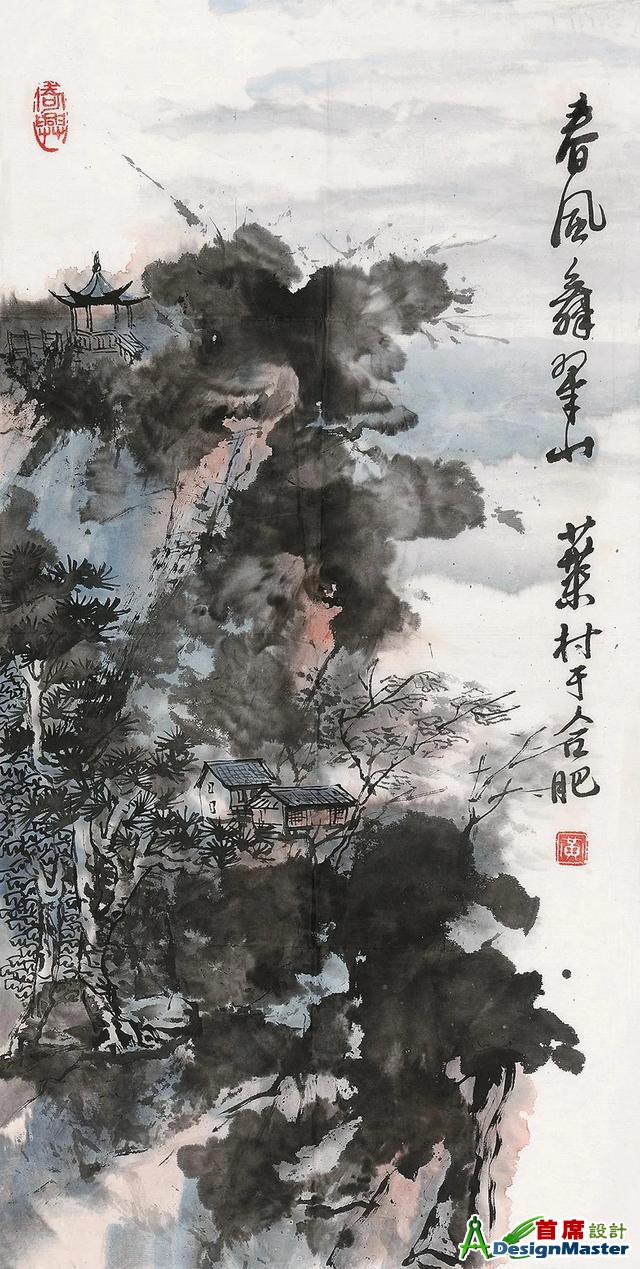 春风舞翠山
叶村于合肥
黄
首席設計
ADesignMaster